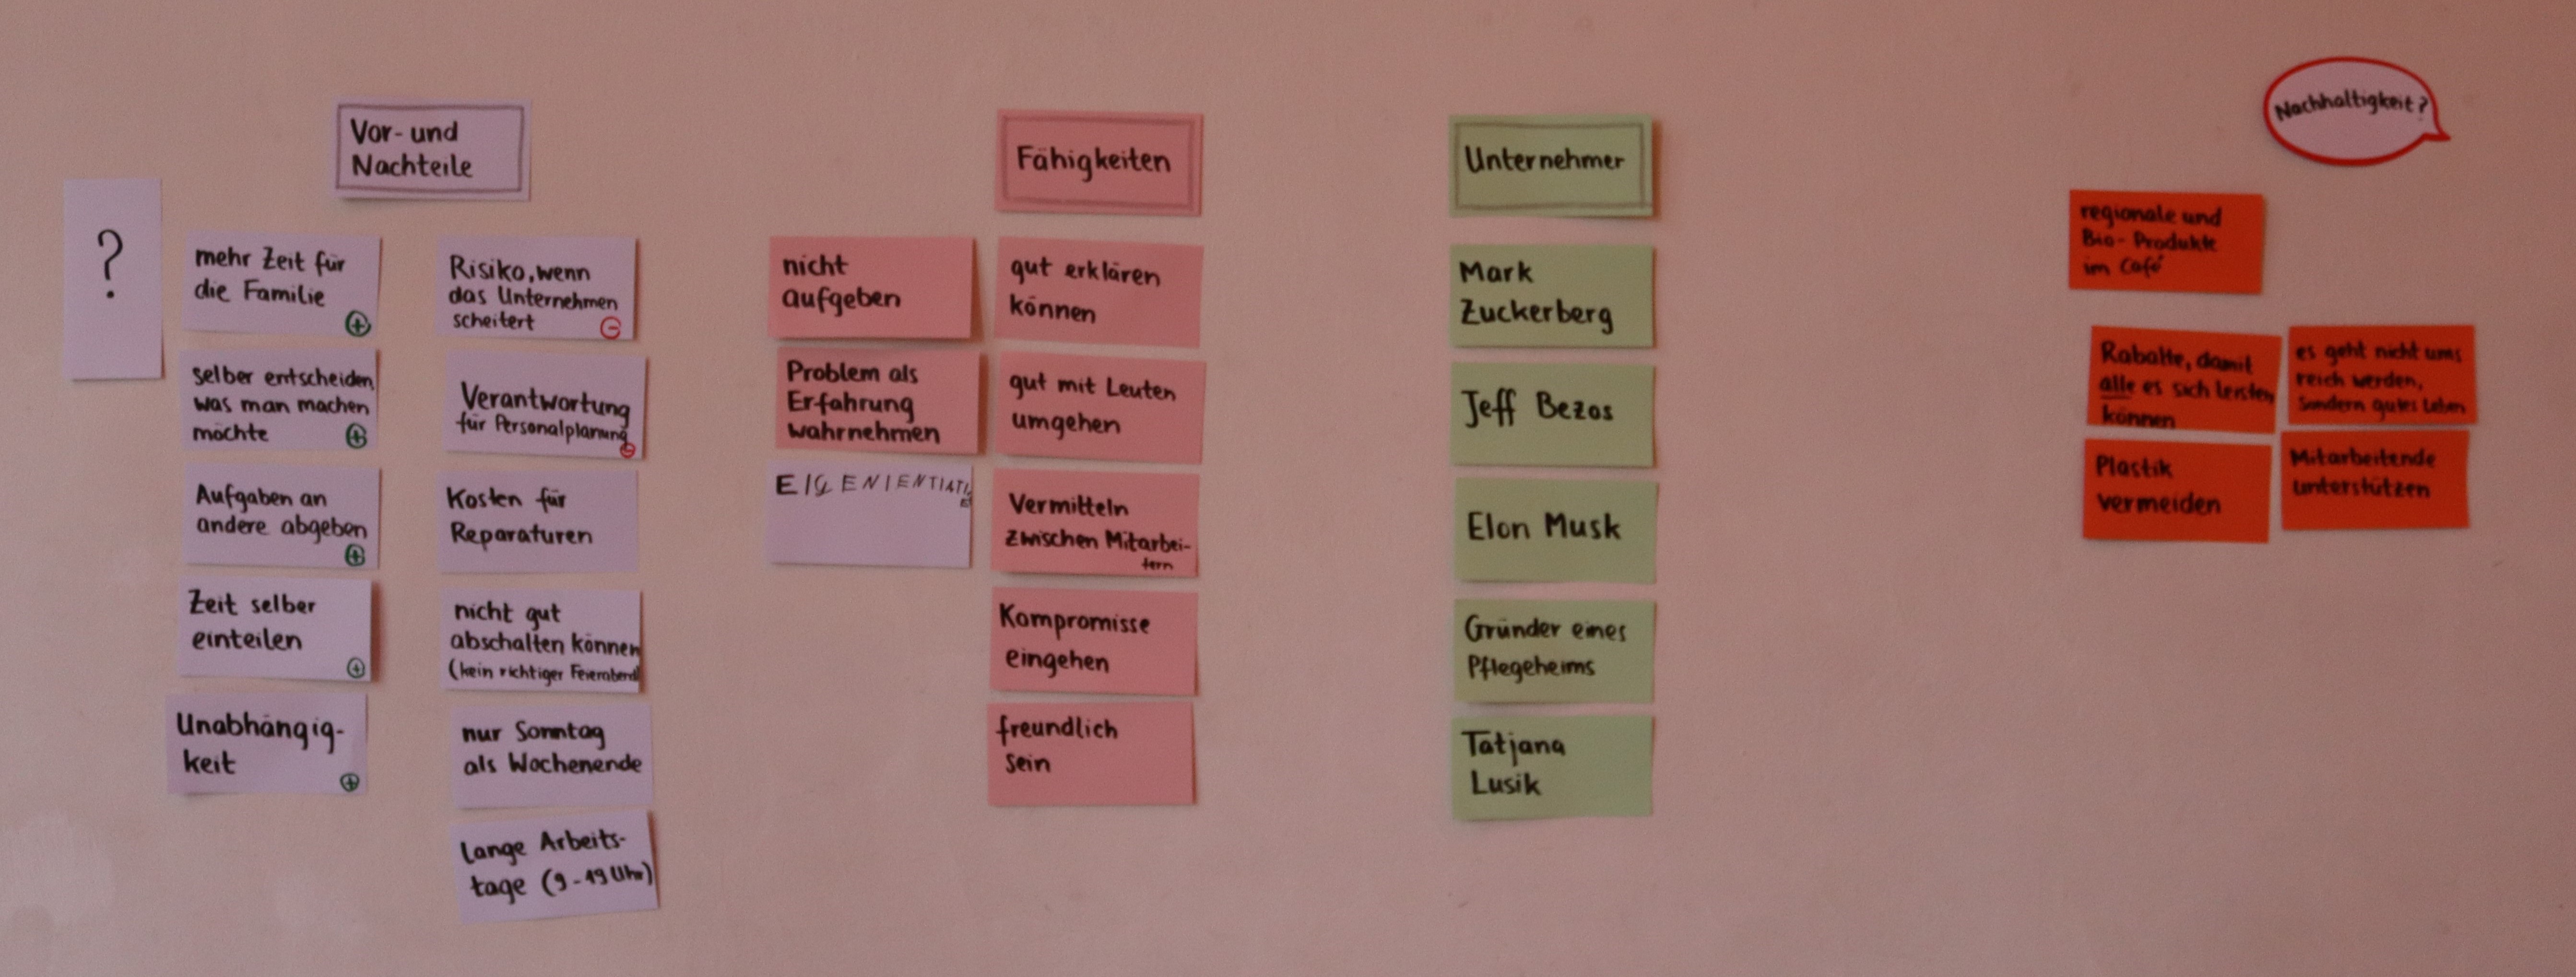 Vor- und
Nachteile
?
mehr Zeit für
die Familie
+
selber entscheiden,
was man machen
möchte
+
Aufgaben an
andere abgeben
+
Zeit selber
einteilen
+
Unabhängig-
keit
+
Risiko, wenn
das Unternehmen
scheitert
-
Verantwortung
für Personalplanung
-
Kosten für
Reparaturen
nicht gut
abschalten können
(kein richtiger Feierabend)
nur Sonntag
als Wochenende
lange Arbeits-
tage (9-19 Uhr)
Fähigkeiten
nicht
aufgeben
Problem als
Erfahrung
wahrnehmen
EIGENIENTIATI
gut erklären
können
gut mit Leuten
umgehen
Vermitteln
zwischen Mitarbei-
tern
Kompromisse
eingehen
freundlich
sein
Unternehmer
Mark
Zuckerberg
Jeff Bezos
Elon Musk
Gründer eines
Pflegeheims
Tatjana
Lusik
Nachhaltigkeit?
regionale und
Bio-Produkte
im Café
Rabatte, damit
alle es sich leisten
können
Plastik
vermeiden
es geht nicht ums
reich werden,
sondern gutes Leben
Mitarbeitende
unterstützen